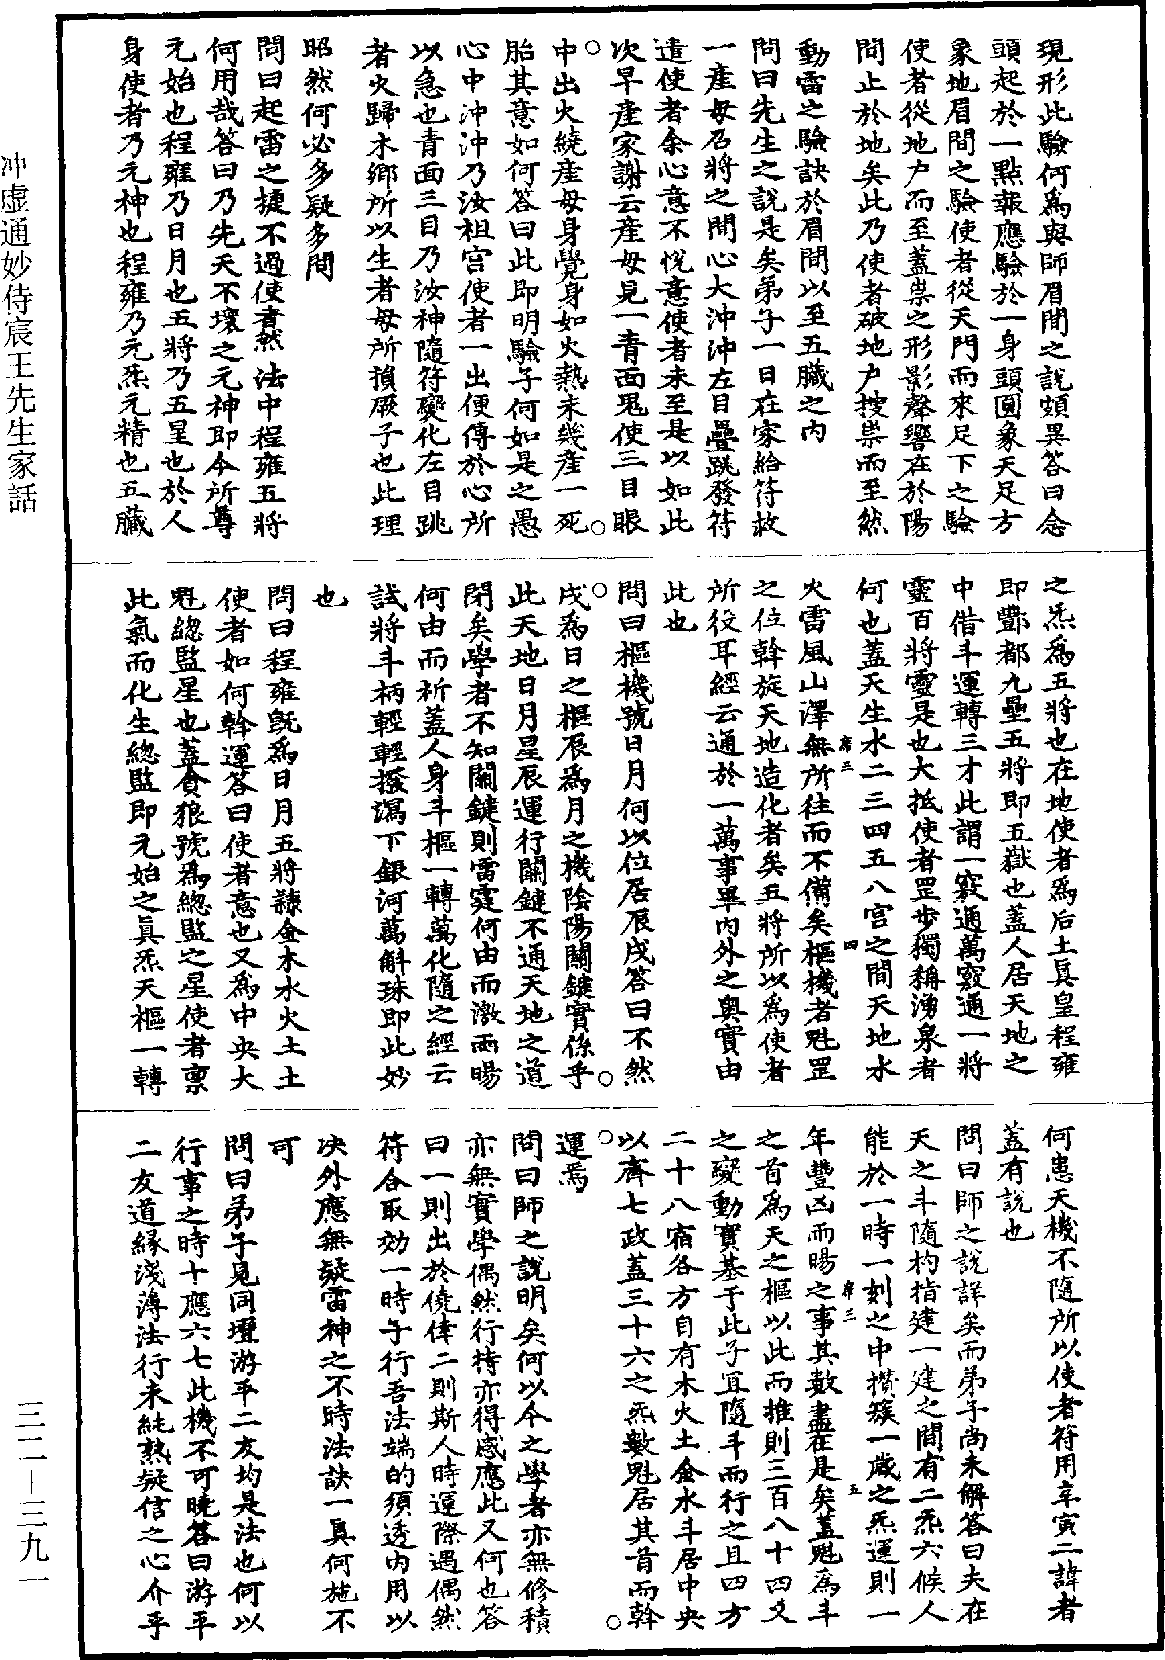 現形此驗何爲與師眉間之說頗異答曰念
頭起於一點報應驗於一身頭圓象天足方
象地眉間之驗使者從天門而來足下之驗
使者從地户而至蓋祟之形影聲響在於陽
間止於地矣此乃使者破地户搜祟而至然
動雷之驗訣於眉間以至五臟之内
問曰先生之說是矣弟子一日在家給符救
一產母召將之間心大沖沖左目疊跳發符
遣使者余心意不悅意使者未至是以如此
次早產家謝云產母見一青面鬼使三目眼
中出火繞產母身覺身如火熱未幾產一死
胎其意如何答曰此即明驗子何如是之愚
心中沖沖乃汝祖宫使者一出便傳於心所
以急也青面三目乃汝神隨符變化左目跳
者火歸木鄉所以生者母所損厥子也此理
昭然何必多疑多問
問曰起雷之捷不過使者然法中程雍五將
何用哉答曰乃先天不壞之元神即今所尊
元始也程雍乃日月也五將乃五星也於人
身使者乃元神也程雍乃元炁元精也五臟
之炁爲五將也在地使者爲后土真皇程雍
即酆都九壘五將即五嶽也蓋人居天地之
中借斗運轉三才此謂一竅通萬竅通一將
靈百將靈是也大抵使者罡步獨稱湧泉者
何也蓋天生水二三四五八宫之間天地水
火雷風山澤無所往而不備矣樞機者魁罡
之位斡旋天地造化者矣五將所以爲使者
所役耳經云通於一萬事畢内外之奥實由
此也
問曰樞機號日月何以位居辰戌答曰不然
戌爲日之樞辰爲月之機陰陽關鍵實係乎
此天地日月星辰運行關鍵不通天地之道
閉矣學者不知關鍵則雷霆何由而激雨暘
何由而祈蓋人身斗樞一轉萬化隨之經云
試將斗柄輕輕撥瀉下銀河萬斛珠即此妙
也
問曰程雍旣爲日月五將隸金木水火土土
使者如何斡運答曰使者意也又爲中央大
魁總監星也蓋貪狼號爲總監之星使者禀
此氣而化生總監即元始之真炁天樞一轉
何患天機不隨所以使者符用辛寅二諱者
蓋有說也
問曰師之說詳矣而弟子尚未解答曰夫在
天之斗隨杓指建一建之間有二炁六候人
能於一時一刻之中攢簇一歲之炁運則一
年豐凶雨暘之事其數盡在是矣蓋魁爲斗
之首爲天之樞以此而推則三百八十四爻
之變動實基于此子宜隨斗而行之且四方
二十八宿各方自有木火土金水斗居中央
以齊七政蓋三十六之炁數魁居其首而斡
運焉
問曰師之說明矣何以今之學者亦無修積
亦無實學偶然行持亦得感應此又何也答
曰一則出於僥倖二則斯人時運際遇偶然
符合取効一時子行吾法端的須透内用以
决外應無疑雷神之不時法訣一真何施不
可
問曰弟子見同壇游平二友均是法也何以
行事之時十應六七此機不可曉答曰游平
二友道緣淺薄法行未純熟疑信之心介乎
冲虛通妙侍宸王先生家話
三二—三九一
席三
四
席三
五